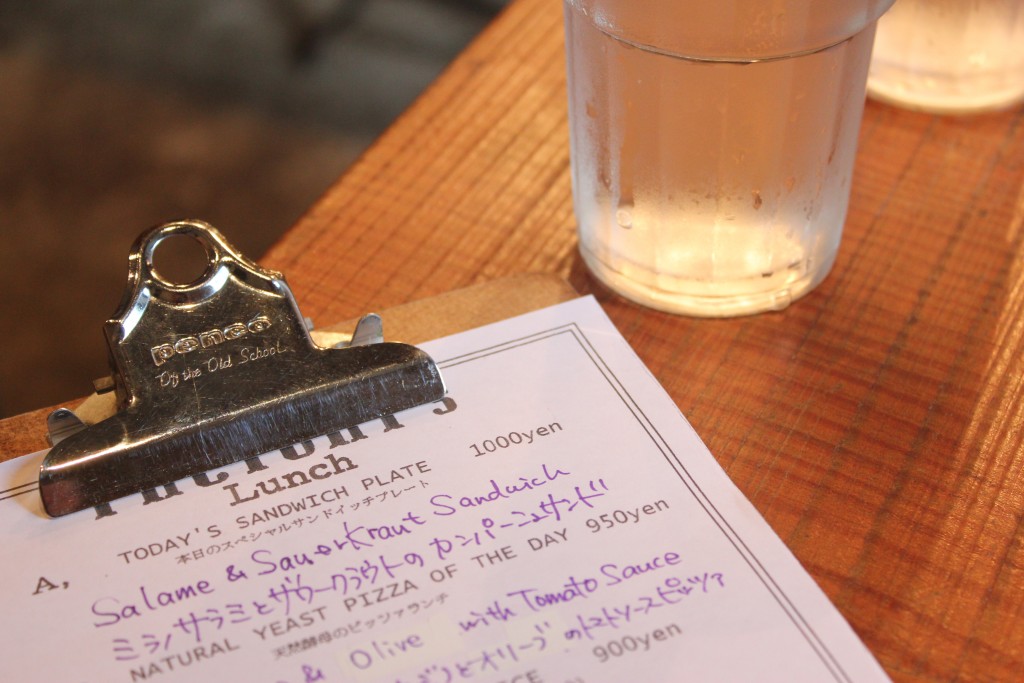 penco
Of the Old School.
Lunch
TODAY'S SANDWICH PLATE 1000yen
本日のスペシャルサンドイッチプレート
A, Salame & Sauerkraut Sandwich
ミラノサラミとザワークラウトのカンパーニュサンド
NATURAL YEAST PIZZA OF THE DAY 950yen
天然酵母のピッツァランチ
& Olive with Tomato Sauce
とオリーブのトマトソースピッツァ
900yen